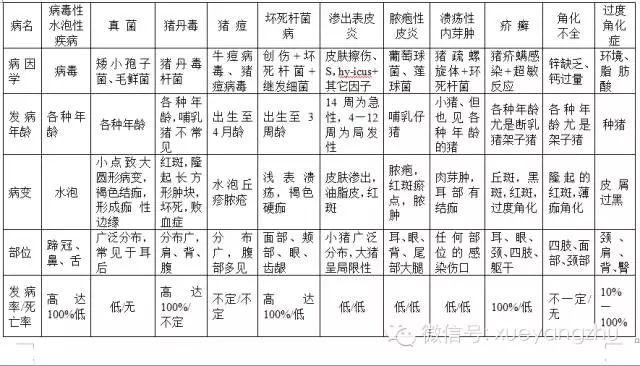 病名
病毒性
水泡性
疾病
真菌
猪丹毒
猪 痘
坏死杆菌
病
渗出表皮
炎
脓疱性
皮炎
溃疡性
内芽肿
疥 癣
角化
不全
过度
角化
症
病 因
学
病毒
矮小孢子
菌、毛鲜菌
猪丹毒
杆菌
牛痘病
毒、猪
痘病毒
创伤+坏
死杆菌+
继发细菌
皮肤擦伤、
S，hy-icus+
其它因子
葡萄球
菌、莲
球菌
猪疏螺
旋体+坏
死杆菌
猪疥螨感
染+超敏
反应
锌缺乏、
钙过量
环境、
脂肪
酸
发 病
年龄
各种年龄
各种年龄
各种年
龄,哺乳
猪不常
见
出生至
4月龄
出生至 3
周龄
14 周为急
性，4—12
周为局发
性
哺乳仔
猪
小猪、但
也见各
种年龄
的猪
各种年龄
尤是断乳
猪架子猪
各种年
龄尤是
架子猪
种猪
病变
水泡
小点致大
圆形病变，
褐色结痂，
形成痂 性
边缘
红斑，隆
起长方
形肿块，
坏死，败
血症
水泡丘
疹脓疮
浅表溃
疡，褐色
硬痂
皮肤渗出，
油脂皮，红
斑
脓疱，
红斑瘀
点，脓
肿
肉芽肿，
耳部有
结痂
丘斑、黑
斑，红斑，
过度角化
隆起的
红斑，薄
痂角化
皮屑
过黑
部位
蹄冠、
鼻、舌
广泛分布，
常见于耳
后
分布广，
肩、背、
腹
分布
广，腹
部多见
面部、颊
部、眼、
齿龈
小猪广泛
分布，大猪
呈局限性
耳、眼、
背、尾
部大腿
任何部
位的感
染伤口
耳、眼、
颈、四肢、
躯干
四肢、面
部、颈部
颈、
肩、
背、臀
发 病
率/死亡
率
高达
100%/低
低/无
高达
100%/
不定
不定/不
定
高达
100%/低
低/低
低/低
低/低
100%/低
不一定/
无
10%
—
100%
微信号: xueyangzhu